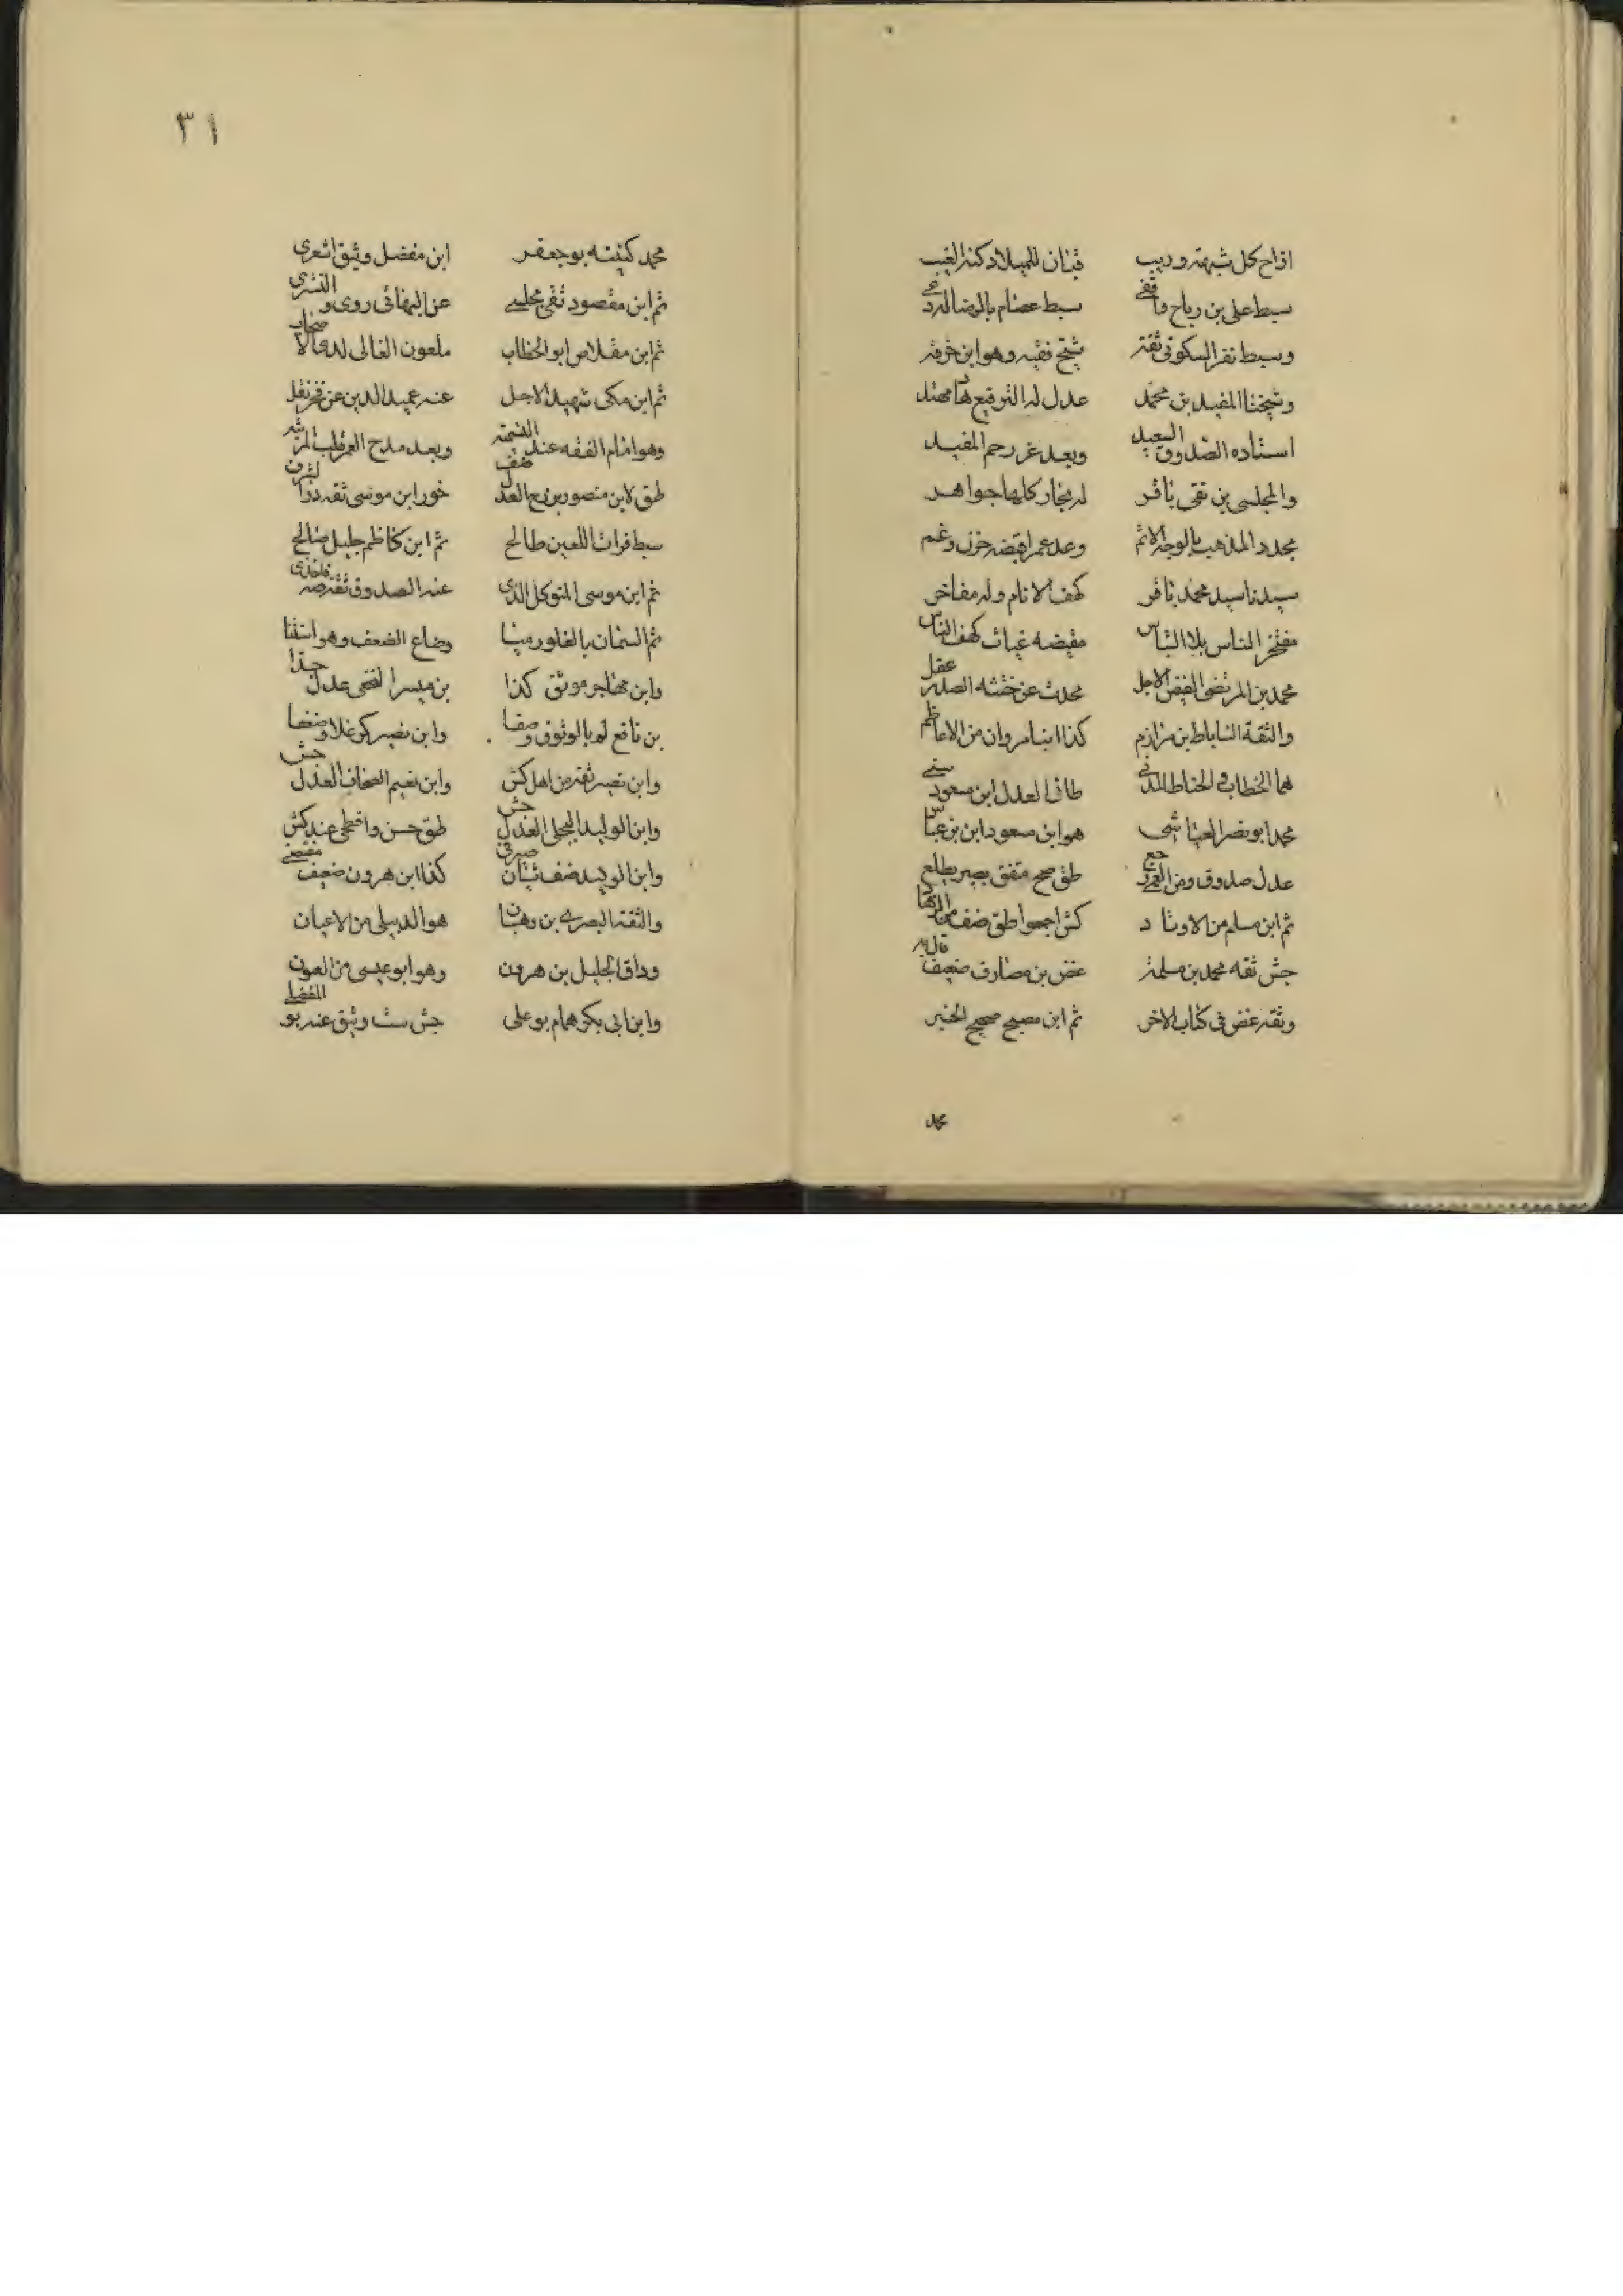 ازاح كل شبهة وريب فبان للميلاد كنه الغيب
سبط علي بن رباح واقفي سبط عصام بالرضا له دعي
وسبط نفر السكوني ثقة شيخ فقيه وهو ابن خرفه
وشيخنا المفيد بن محمد عدل له التوقيع ها مهتد
استاده الصدوق السعيد وبعد عز رحم المفيد
والمجلسي بن تقي باقر له بحار كلها جواهر
مجدد المذهب بالوجه الاتم وعد عمرا قبضه حزن وغم
سيدنا سيد محمد باقر كهف الانام وله مفاخر
مفتخر الناس بلا التباس مقبضه غياث كهف الناس
محمد بن المرتضى الفيض الاجل محدث عن خفته الصدر عقل
والثقة الساباط بن مرازم كذا ابنا مروان من الاعاظم
هما الخطاب والحناط المدني طاق العدل ابن مسعود سني
محمد ابو نصر العياشي هو ابن مسعود ابن بن عياش
عدل صدوق ومن العمى رجع طق صح متفق بصير يطلع
ثم ابن مسلم من الاوتاد كش اجمعوا طق ضف من ارتها
جش ثقه محمد بن مسلمة غض بن مصارف ضعيف قال به
وثقه غض في كتاب الاخر ثم ابن مصبح صحيح الخبر
محمد
٣١
محمد كنيته بوجعفر ابن مفضل وثيق اشعري
ثم ابن مقصود تقي مجلسي عن البهائي روى و التستري
ثم ابن مقلاص ابو الخطاب ملعون الغالي لدى الاصحاب
ثم ابن مكي شهيد الاجل عنه عميد الدين عن فخر نقل
وهو امام الفقه عند الشيعة وبعد مدح العمر قلب
طق لابن منصور بن العدل ضف خور ابن موسى ثقه ذو الشرف
سبط فرات اللعين طالح ثم ابن كاظم جليل صالح
ثم ابن موسى المتوكل الذي عنه الصدوق ثقة صه فاحتذى
ثم السمان بالغلو رميا وضاع الضعف وهو استثنا
وابن مهاجر موثق كذا بن ميسر النخعي عدل حبذا
بن نافع لم بالوثوق وصفا وابن نصير كر غلا وضعفا
وابن نصير ثقة من اهل كش وابن نعيم الصحاف العدل جش
وابن الوليد البجلي العدل جش طق حسن وافطحي عند كش
وابن الوليد ضف شبان صيرفي كذا ابن هرون ضعيف
والثقة البصري بن وهبان هو الدبيلي من الاعيان
وداق الجليل بن هرون وهو ابو عيسى من العون
وابن ابي بكر همام بو علي جش ست وثيق عنه بو المفضل